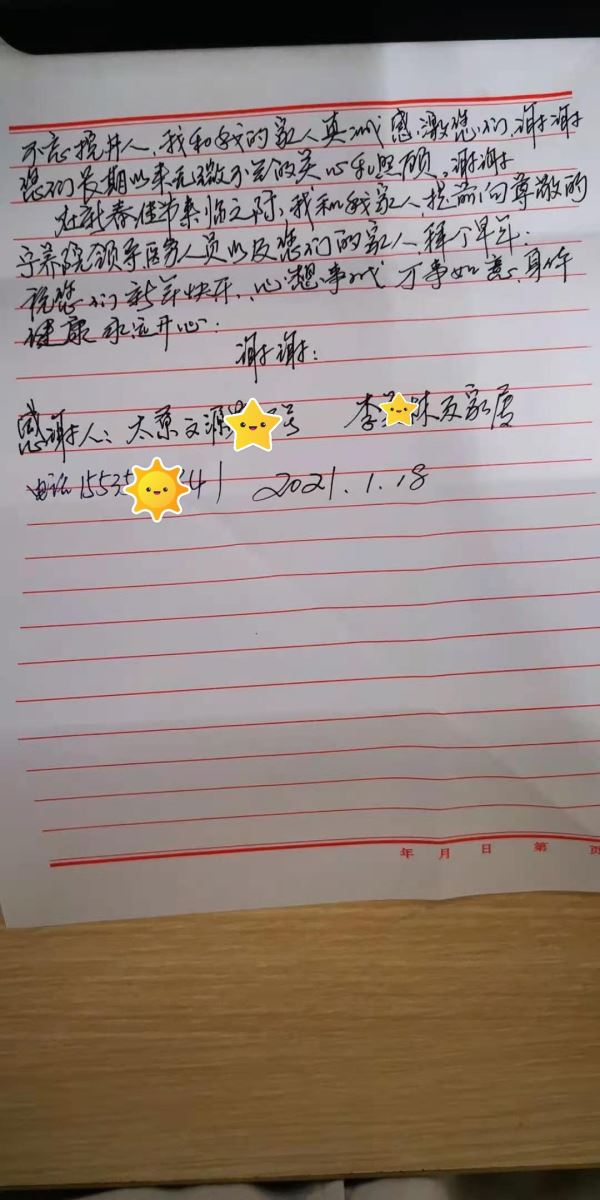 不忘挖井人,我和我的家人真诚感激您们,谢谢
您们长期以来无微不至的关心和照顾。谢谢
在新春佳节来临之际,我和我家人,提前向尊敬的
宁养院领导医务人员以及您们的家人,拜个早年:
祝您们新年快乐,心想事成 万事如意,身体
健康 永远开心:
谢谢:
感谢人:太原文源 号 李 妹及家属
电话 15535 41 2021.1.18
年 月 日 第 页